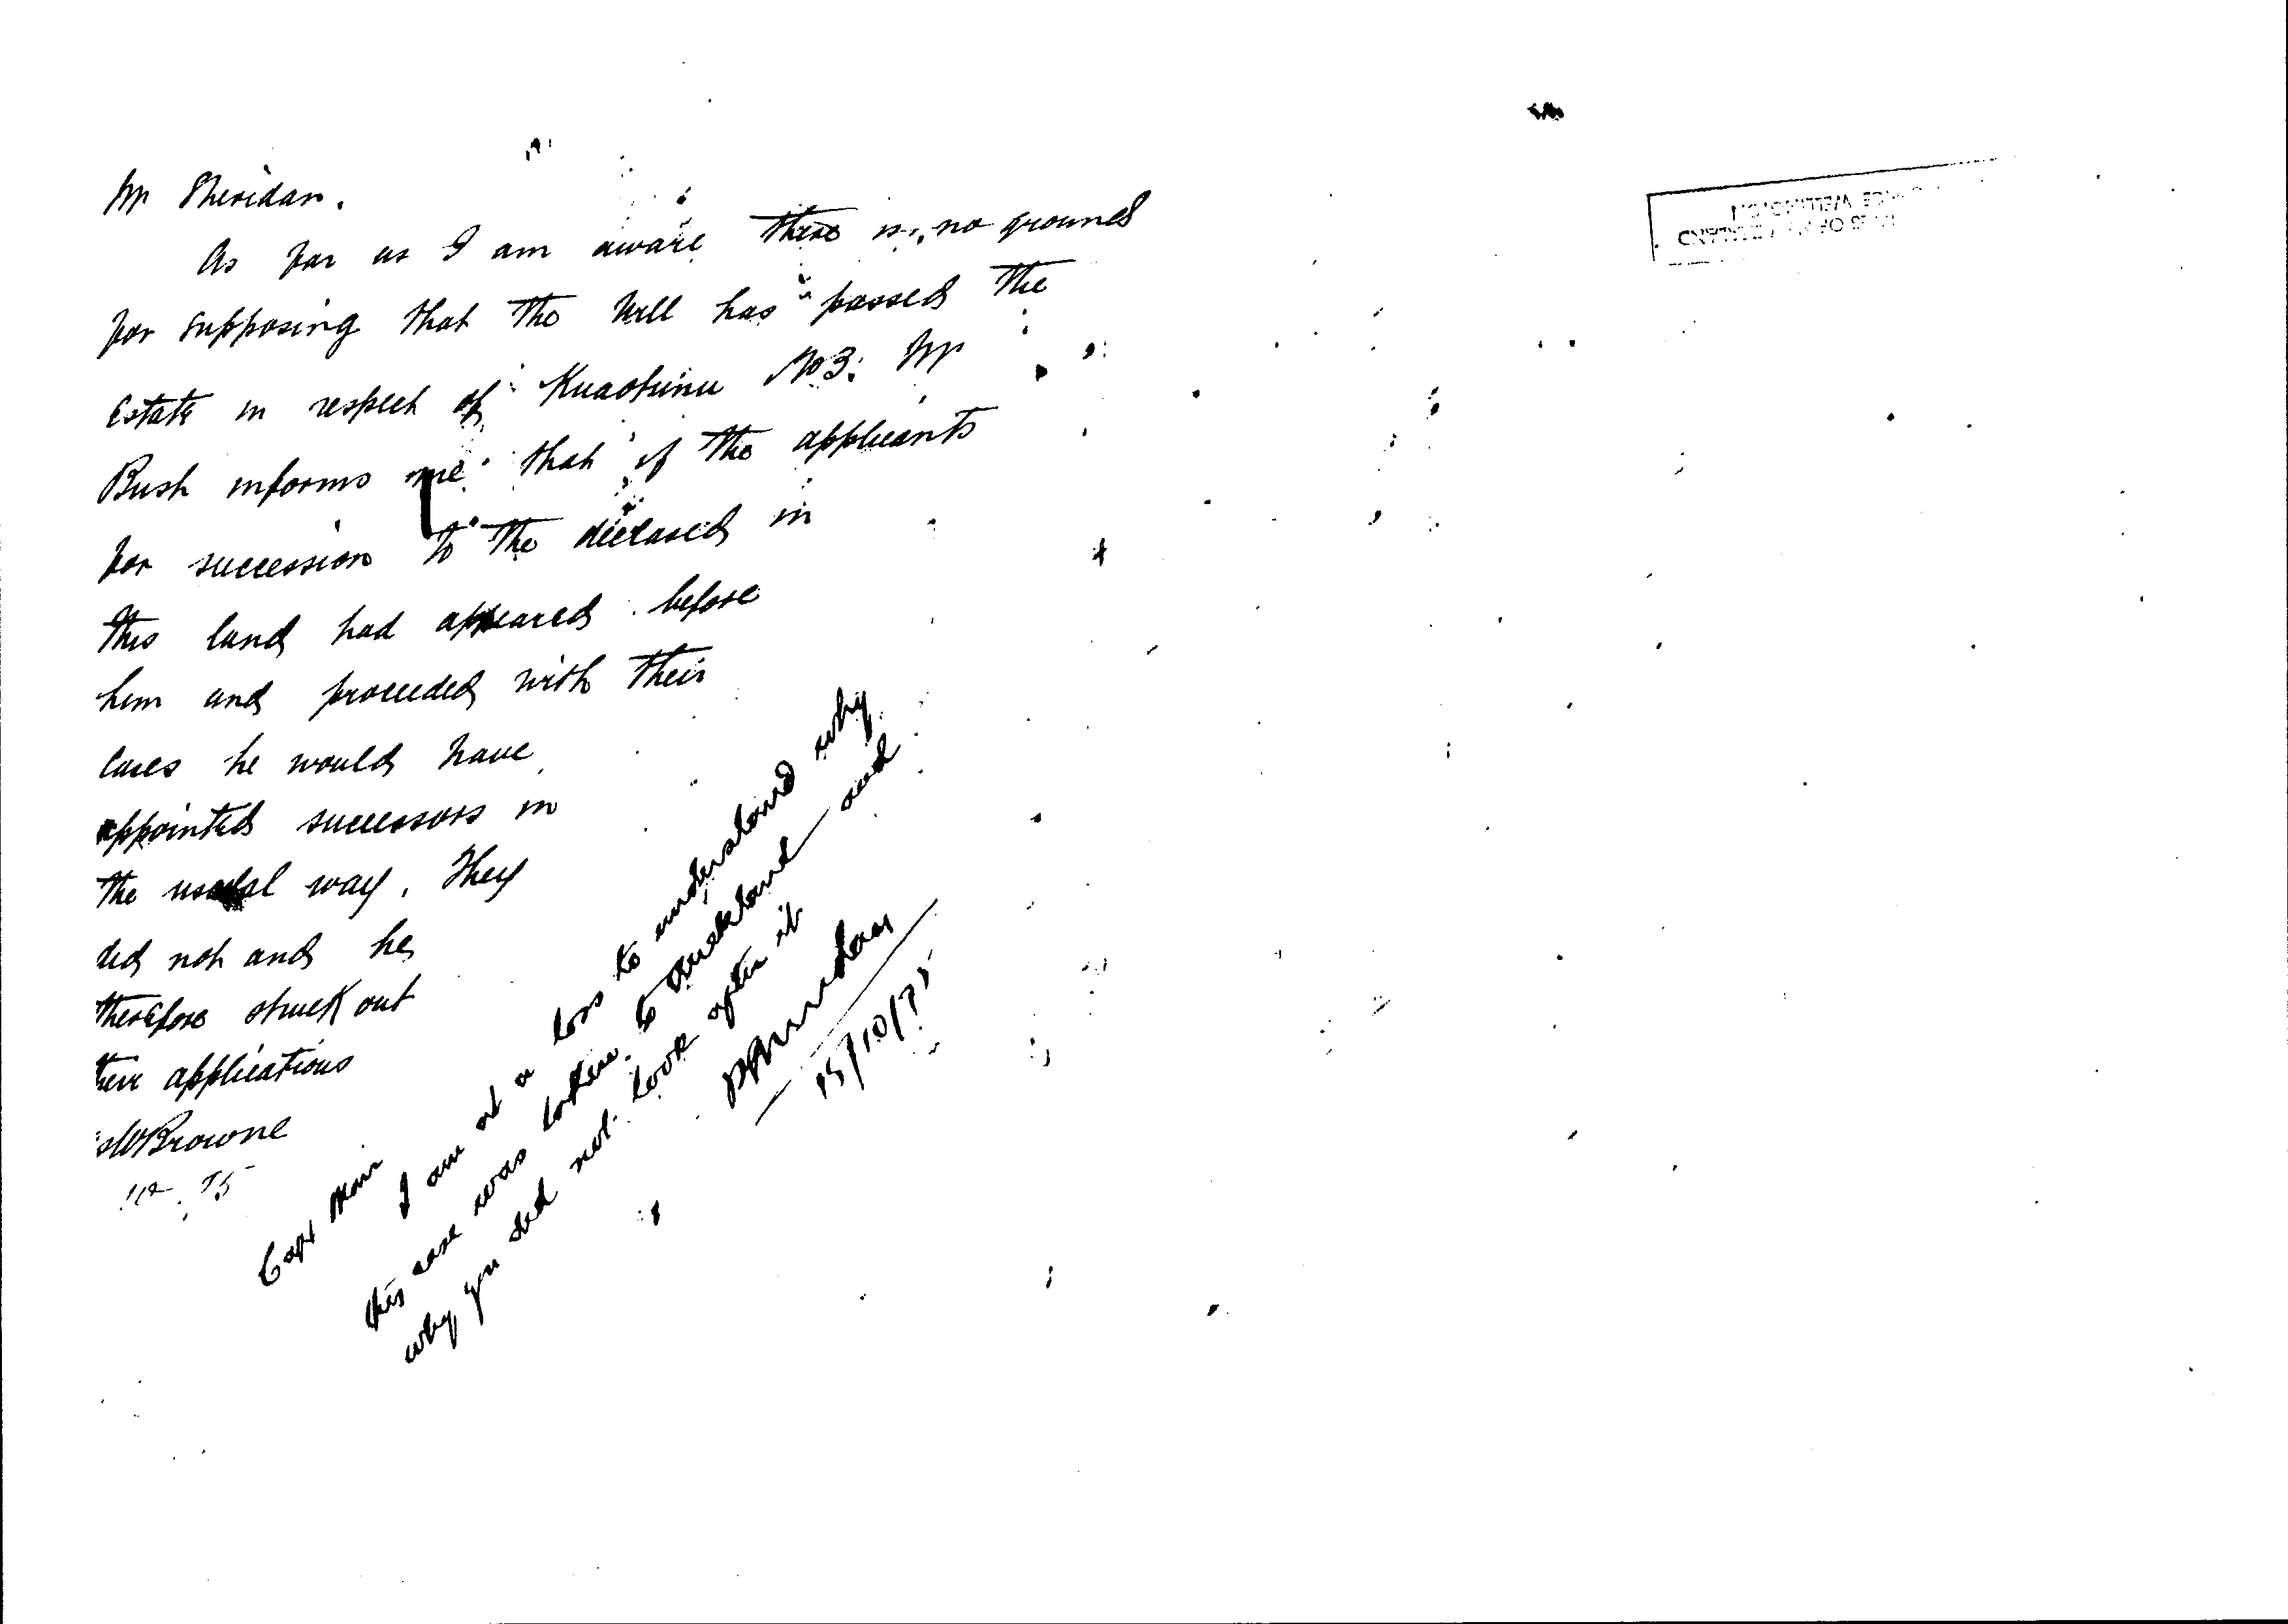 Mr Sheridan.
As far as I am aware there is no grounds
for supposing that the Will has passed the
Estate in respect of Kuaotunu No 3. Mr
Bush informs me that if the applicants
for succession to the deceased in
this land had appeared before
him and proceeded with their
cases he would have
appointed successors in
the usual way. They
did not and he
therefore struck out
their applications
WBrowne
95
Capt Mair
I am at a loss to understand why
this case was taken to Auckland and
why you did not look after it
PSheridan
15/10/95